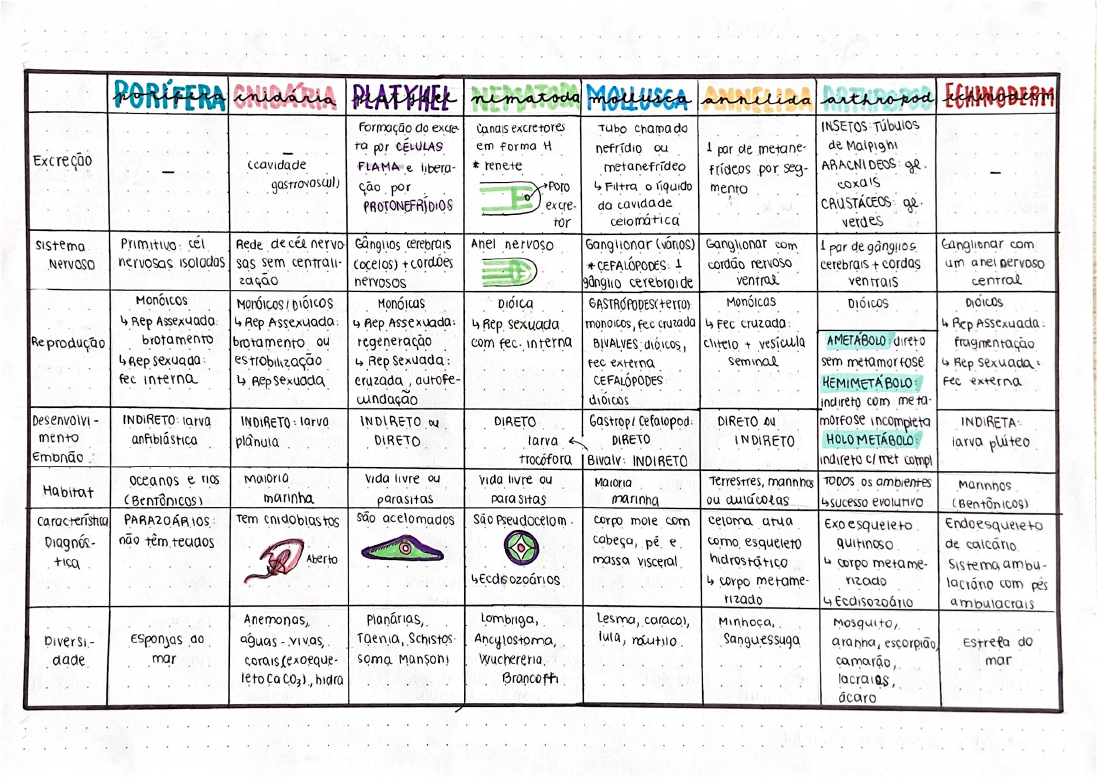 PORÍFERA
CNIDÁRIA
PLATYHEL
NEMATODA
MOLLUSCA
ANNELIDA
ARTHROPOD
ECHINODERM
Excreção
–
–
(cavidade
gastrovascul)
Formação do excre
ta por CÉLULAS
FLAMA e libera-
ção por
PROTONEFRÍDIOS
Canais excretores
em forma H
* renete
Poro
excre-
tor
Tubo chamado
nefrídio ou
metanefrídeo
↳ Filtra o líquido
da cavidade
celomática
1 par de metane-
frídeos por seg-
mento
INSETOS: Túbulos
de Malpighi
ARACNIDEOS: gl.
coxais
CRUSTÁCEOS: gl.
verdes
–
Sistema
Nervoso
Primitivo: cél
nervosas isoladas
Rede de cél nervo
sas sem centrali-
zação
Gânglios cerebrais
(ocelos) + cordões
nervosos
Anel nervoso
Ganglionar (vários)
* CEFALÓPODES: 1
gânglio cerebroide
Ganglionar com
cordão nervoso
ventral
1 par de gânglios
cerebrais + cordas
ventrais
Ganglionar com
um anel nervoso
central
Reprodução
Monóicos
↳ Rep Assexuada:
brotamento
↳ Rep sexuada:
fec interna
Monóicos/Dióicos
↳ Rep Assexuada:
brotamento ou
estrobilização
↳ Rep sexuada
Monóicas
↳ Rep Assexuada:
regeneração
↳ Rep sexuada:
cruzada, autofe-
cundação
Dióica
↳ Rep sexuada
com fec. interna
GASTRÓPODES(terra):
monoicos, fec cruzada
BIVALVES: dióicos,
fec externa
CEFALÓPODES
dióicos
Monóicas
↳ Fec cruzada:
clitelo + vesícula
seminal
DIÓICOS
AMETÁBOLO: direto
sem metamorfose
HEMIMETÁBOLO:
indireto com meta-
morfose incompleta
HOLOMETÁBOLO:
indireto c/ met compl
Dióicos
↳ Rep Assexuada:
fragmentação
↳ Rep sexuada:
Fec externa
Desenvolvi-
mento
Embrião
INDIRETO: larva
anfiblástica
INDIRETO: larva
plânula
INDIRETO ou
DIRETO
DIRETO
larva
trocófora
Gastrop/Cefalopod:
DIRETO
Bivalv: INDIRETO
DIRETO ou
INDIRETO
INDIRETA:
larva plúteo
Habitat
Oceanos e rios
(Bentônicos)
Maioria
marinha
Vida livre ou
parasitas
Vida livre ou
parasitas
Maioria
marinha
Terrestres, marinhos
ou dulcícolas
TODOS os ambientes
↳ sucesso evolutivo
Marinhos
(Bentônicos)
Característica
Diagnós-
tica
PARAZOÁRIOS:
não têm tecidos
Tem cnidoblastos
Aberto
São acelomados
São Pseudocelom.
↳ Ecdisozoários
corpo mole com
cabeça, pé e
massa visceral
celoma atua
como esqueleto
hidrostático
↳ corpo metame-
rizado
Exoesqueleto
quitinoso
↳ corpo metame-
rizado
↳ Ecdisozoário
Endoesqueleto
de calcário
Sistema ambu-
lacrário com pés
ambulacrais
Diversi-
dade
Esponjas do
mar
Anemonas,
águas-vivas,
corais (exoeque-
leto CaCO₃), hidra
Planárias,
Taenia, Schistos-
soma Mansoni
Lombriga,
Ancylostoma,
Wuchereria,
Brancofti
Lesma, caracol,
lula, náutilo
Minhoca,
Sanguessuga
Mosquito,
aranha, escorpião,
camarão,
lacraias,
ácaro
Estrela do
mar